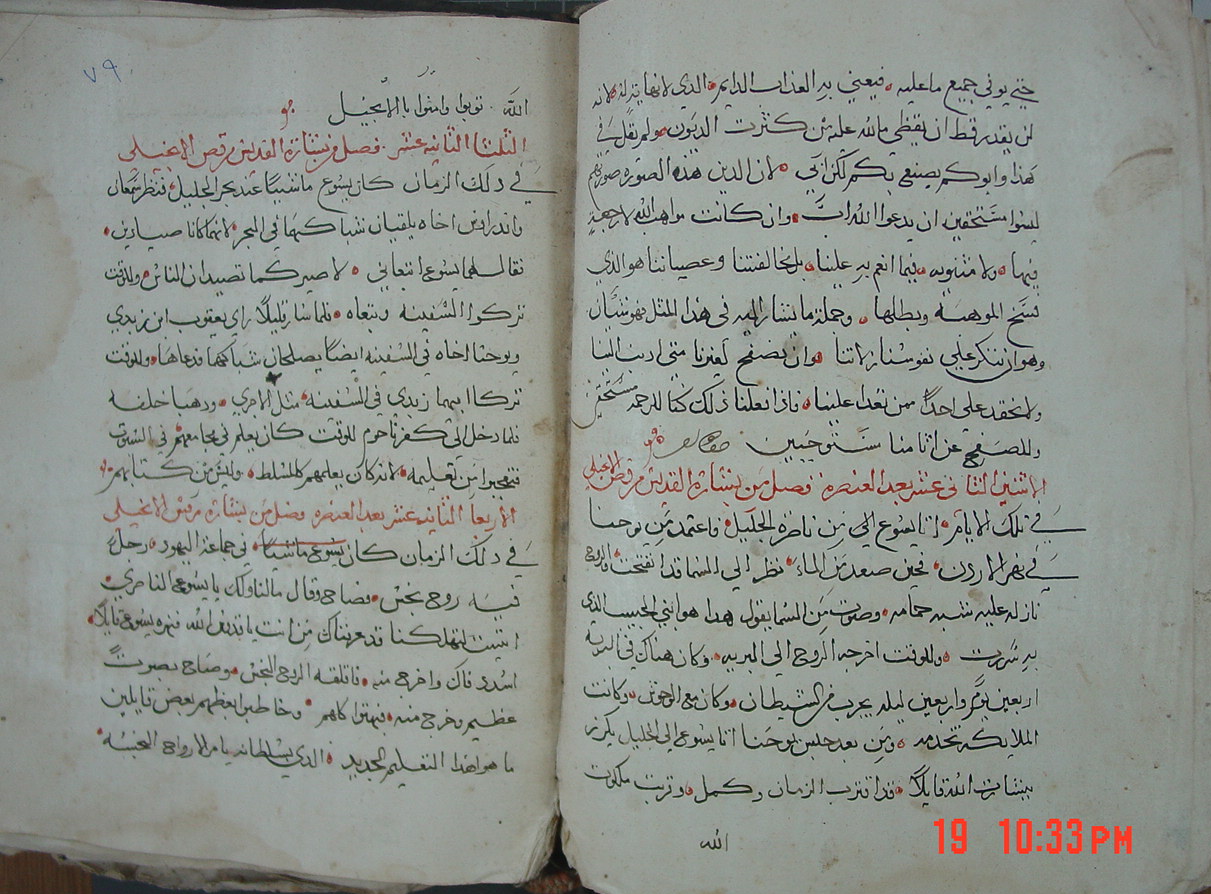 حتى يوفي جميع ما عليه فيعني به العذاب الدايم الذي لا نهاية له لانه
لن يقدر قط ان يقضي ما لله عليه من كثرت الديون ولم يقل في
هذا وابوكم يصنع بكم لكن ابي لان الذين هذه الصوره صورتهم
ليسوا مستحقين ان يدعوا الله اب وان كانت مواهب الله لا رجعة
فيها ولا مثنويه فيما انعم به علينا بل مخالفتنا وعصياننا هو الذي
نسخ الموهبة وبطلها وجملة ما يشار اليه في هذا المثل فهو شيان
وهو ان ننكر علي نفوسنا زلاتنا وان نصفح لغيرنا متي اذنب الينا
ولا نحقد علي احدًا ممن تعدا علينا فاذا فعلنا ذلك كنا للرحمه مستحقين
وللصفح عن اثامنا مستوجبين
الاثنين الثاني عشر بعد العنصره فصل من بشارة القديس مرقص الانجيلي
في تلك الايام اتا يسوع الي من ناصرة الجليل واعتمد من يوحنا
في نهر الاردن فحين صعد من الماء نظر الي السما قد انفتحت والروح
نازله عليه شبه حمامه وصوت من السما يقول هذا هو ابني الحبيب الذي
به سررت وللوقت اخرجه الروح الي البريه وكان هناك في البرية
اربعين يوم واربعين ليله يجرب من الشيطان وكان مع الوحوش وكانت
الملايكه تخدمه ومن بعد حبس يوحنا اتا يسوع الي الجليل يكرز
ببشارت الله قايلاً قد اقترب الزمان وكمل وقربت ملكوت
الله
٧٩
الله توبوا وامنوا بالانجيل
الثلثا الثانيه عشر فصل من بشارة القديس مرقص الانجيلي
في ذلك الزمان كان يسوع ماشيًا عند بحر الجليل فنظر سمعان
واندراوس اخاه يلقيان شباكهما في البحر لانهما كانا صيادين
فقال لهما يسوع اتبعاني لاصيركما تصيدان الناس وللوقت
تركوا السفينه وتبعاه فلما سار قليلاً راي يعقوب ابن زبدي
ويوحنا اخاه في السفينه ايضًا يصلحان شباكهما فدعاهما وللوقت
تركا ابيهما زبدي في السفينه مثل الاجري وذهبا خلفه
فلما دخل الي كفرناحوم للوقت كان يعلم في مجامعهم في السبوت
فتعجبوا من تعليمه لانه كان يعلمهم كالمسلط وليس مثل كتابهم
الاربعا الثانيه عشر بعد العنصره فصل من بشارة مرقس الانجيلي
في ذلك الزمان كان يسوع ماشيًا في جماعة اليهود ورجل
فيه روح نجس فصاح وقال مالنا ولك يا يسوع الناصري
اتيت لتهلكنا قد عرفناك من انت يا قدوس الله فنهره يسوع قايلاً
اسدد فاك واخرج منه فاقلقه الروح النجس وصاح بصوت
عظيم وخرج منه فبهتوا كلهم وخاطبوا بعضهم بعض قايلين
ما هو هذا التعليم الجديد الذي بسلطانه يامر الارواح النجسه
19 10:33 PM